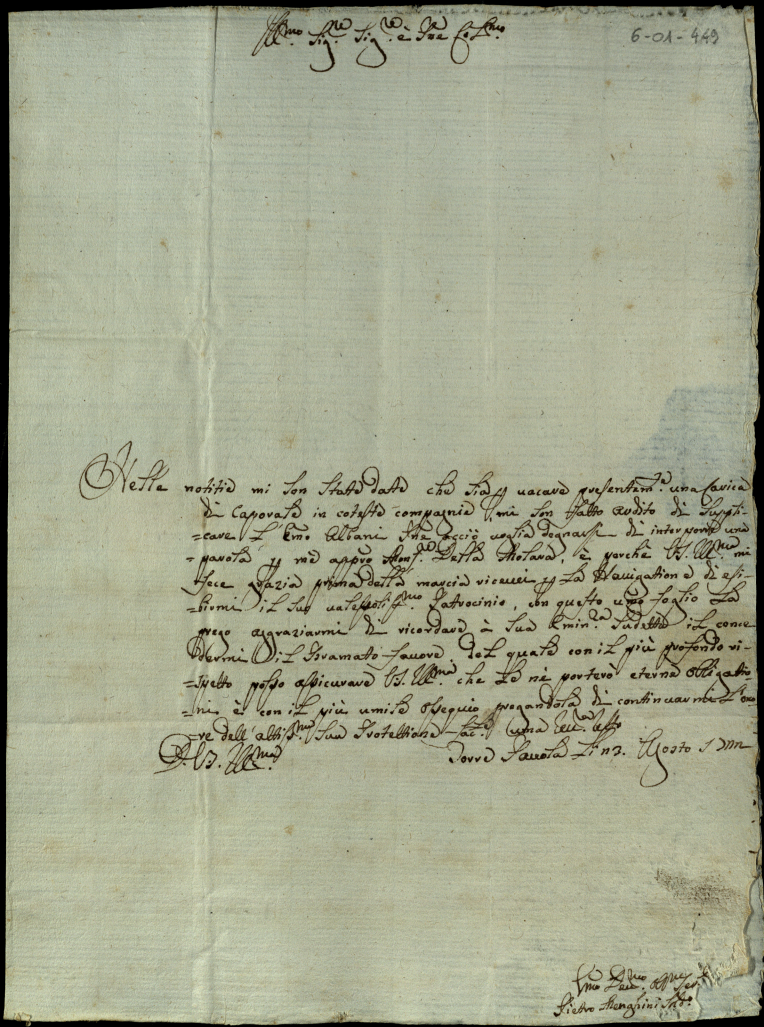 Ill.mo Sig.re Sig.re è Pne Col.mo
6-01-449
Nelle notitie mi son state date che sia p vacare presentem.te una Carica
di Caporale in coteste compagnie mi son fatto ardito di suppli-
=care l' Emo Albani Pne acciò voglia degnarsi di interporre una
=parola p me appro Mons.r Della Molara, è perche V.S. Ill.ma mi
fece grazia prima della marcia ricevei p la Navigatione di esi-
birmi il suo Patrocinio, con questo umo foglio La
prego aggraziarmi di ricordare à Sua Emin.za sudetta il conce
dermi il bramato favore del quale con il più profondo ri-
=spetto posso assicurare V.S. Ill.ma che le nè porterò eterne obligatio
=ni è con il più umile ossequio pregandola di continuarmi l'ono
=re dell' altiss.ma Sua Protettione
D. V.S. Ill.ma
Torre Agosto
Pietro Menghini